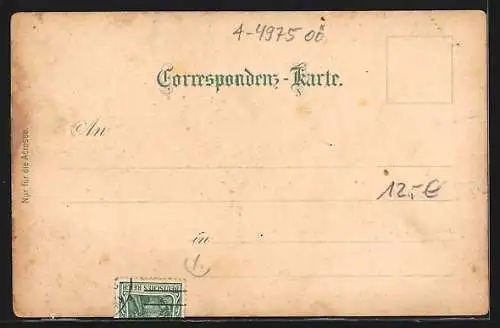 A-4975 OÖ
Correspondenz-Karte.
An
Nur für die Adresse.
12,-€
in
DEUTSCHES REICH